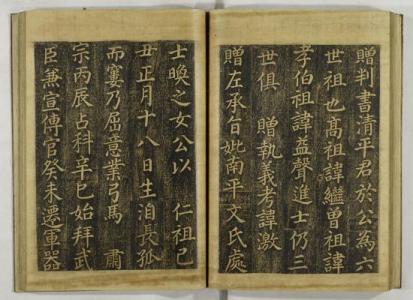 贈判書清平君於公為六
世祖也高祖諱繼曾祖諱
孝伯祖諱益聲進士仍三
世俱　贈執義考諱激
贈左承旨妣南平文氏處
士晚之女公以　仁祖己
丑正月十八日生洎長孤
而窶乃屈意業弓馬　肅
宗丙辰占科辛巳始拜武
臣兼宣傳官癸未遷軍器